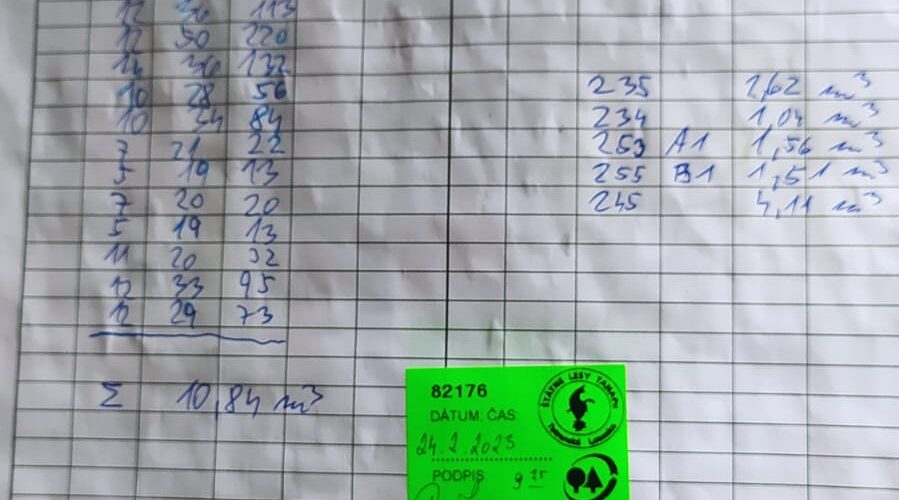 12 36 113
12 50 220
12 36 132
10 28 56
10 34 84
7 21 22
5 19 13
7 20 20
5 19 13
11 20 32
12 33 95
12 29 73
Σ 10,84 m³
235 2,62 m³
234 1,04 m³
253 A1 1,56 m³
255 B1 1,51 m³
245 4,11 m³
82176
DÁTUM, ČAS
24.2.2023
PODPIS 9 25
ŠTÁTNE LESY TANAPU
Tatranská Lomnica